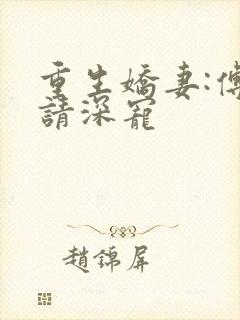 重生嬌妻:傅
請深寵
趙錦屏